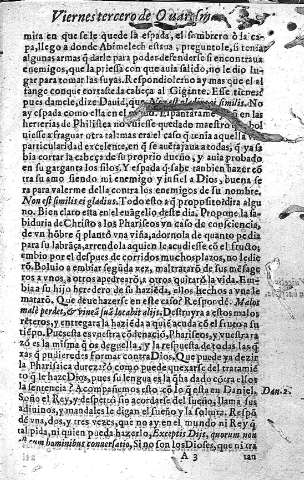 Viernes tercero de Quaresma
mita en que se le quede la espada, el sombrero ò la ca-
pa, llego a donde Abimelech estaua, preguntole, si tenia
algunas armas q̃ darle para poder defenderse si encontraua
enemigos, que la priessa con que auia salido, no le dio lu-
gar para tomar las suyas. Respondiole: no ay mas que el al
fange con que cortaste la cabeça al Gigante. Esse tienes?
pues damele, dize Dauid, que Non est gladius ei similis. No
ay espada como ella en el
herrerias de Philistea no vuiesse quedado maestro
uiesse a fraguar otra tal: mas era el caso q̃ tenia aquella vna
particularidad excelente, en q̃ se auētajaua a todas, q̃ ya sa
bia cortar la cabeça de su proprio dueño, y auia probado
en su garganta los filos. Y espada q̃ sabe tambien hazer cō
tra su amo siendo mi enemigo y insiel a Dios, buena se
ra para valerme della contra los enemigos de su nombre.
Non est similis ei gladius. Todo esto a q̃ proposito? dira algu
no. Bien claro esta en el euāgelio deste dia. Propone la sa-
biduria de Christo a los Phariseos vn caso de consciencia,
de vn hōbre q̃ plantò vna viña, adornola de quanto pedia
para su labrāça, arrendola a quien le acudiesse cō el fructo:
embio por el despues de corridos muchos plazos, no le die
rō. Boluio a embiar segūda vez, maltrataró de sus mēsage
ros a vnos, a otros apedrearō, a otros quitarō la vida. Em-
bia a su hijo heredero de su haziēda, ellos, hechos a vna le
mataron. Que deue hazerse en este caso? Respondē. Malos
malè perdet, & vineā suā locabit alijs. Destruyra a estos malos
rēteros, y entregara la haziēda a quiē acuda cō el fruto a su
tiēpo. Pues essa es vuestra cōdenaciō, Phariseos, y vuestra ra
zō es la misma q̃ os deguella, y la respuesta de todas las q̃-
xas q̃ pudieredes formar contra Dios. Que puede ya dezir
la Pharisaica dureza? ò como puede quexarse del tratamiē
to q̃ le haze Dios, pues su lengua es la q̃ ha dado cōtra ellos
la sentencia? Acompañemos esto cō lo q̃ esta en Daniel.
Dan. 2.
Soño el Rey, y desperto sin acordarse del sueño, llama sus
adiuinos, y mandales le digan el sueño y la soltura. Respō
dē vna, dos, y tres vezes, que no ay en el mundo ni Rey q̃
tal pida, ni quien pueda hazerlo, Exceptis Dijs, quorum non
est cum hominibus conuersatio. Si no son los Dioses, que ni tra
A 3